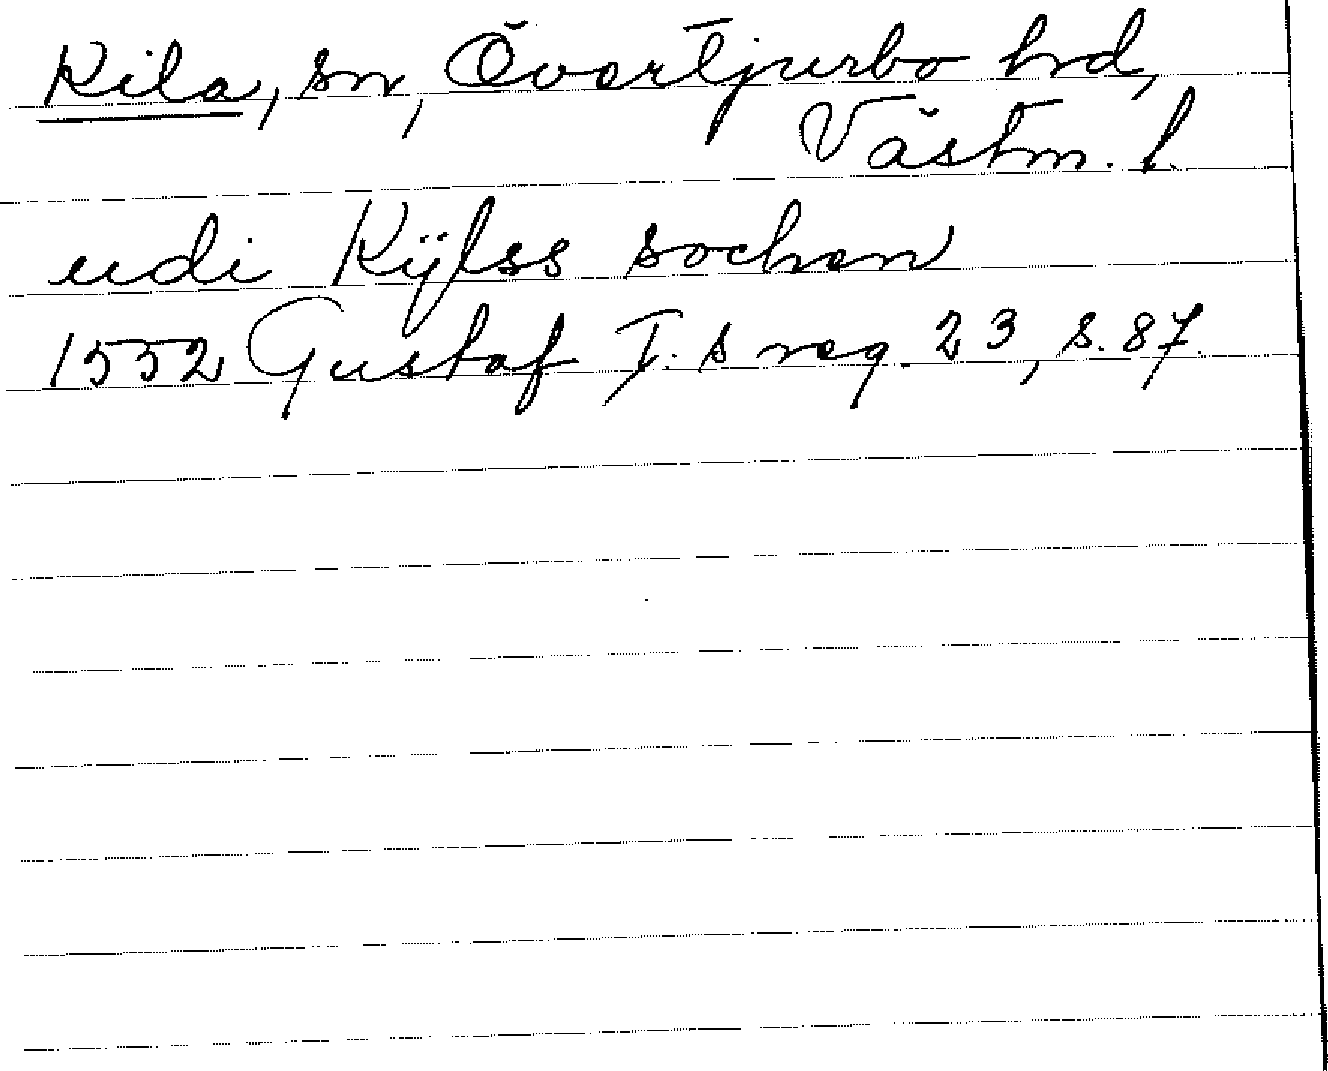 Kila, sn, Övertjurbo hrd,
Västm. l.
udi Kÿlss sochen
1552 Gustaf I:s reg. 23, s. 87.